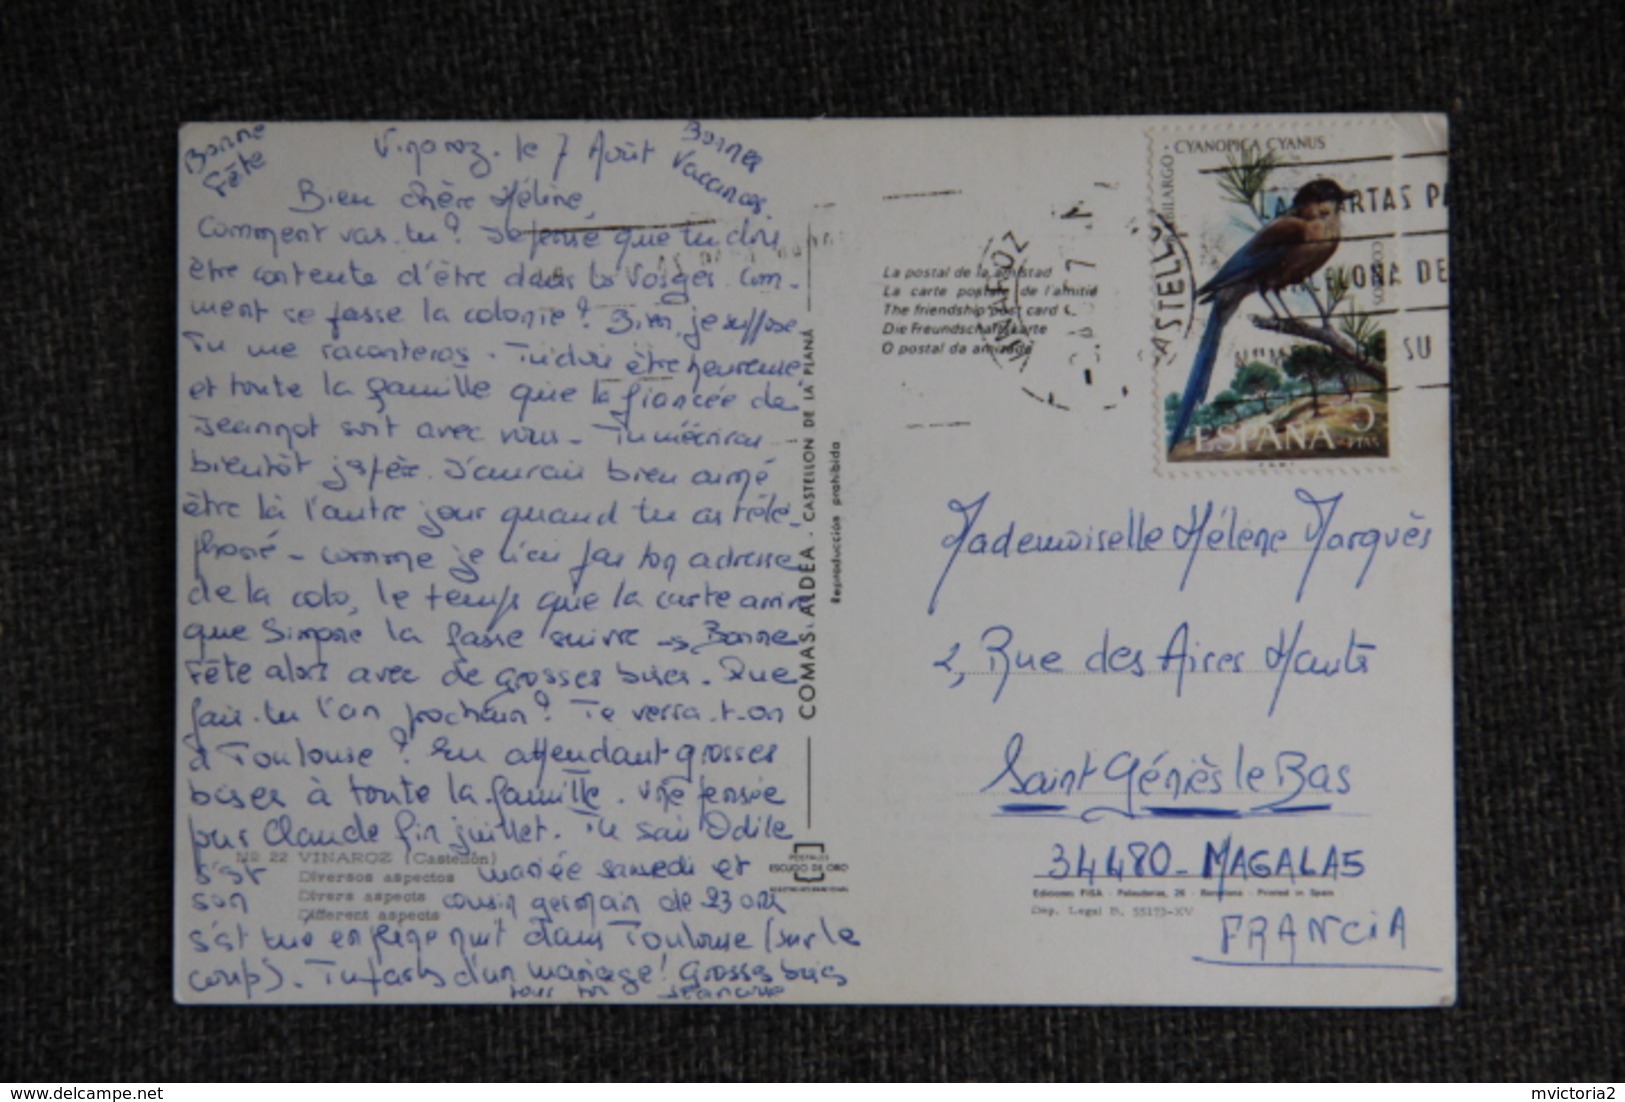 Bonne
Fête
Vinaroz. le 7 Août
Bonnes
Vaccances.
Bien chère Hélène,
Comment vas-tu? Je pense que tu dois
être contente d'être dans les Vosges. Com-
ment se passe la colonie? Bien, je suppose
Tu me raconteras. Tu dois être heureuse
et toute la famille que la fiancée de
Jeannot soit avec vous. Tu m'écriras
bientôt j'espère. J'aurais bien aimé
être là l'autre jour quand tu as télé-
phoné. Comme je n'ai pas ton adresse
de la colo, le temps que la carte arrive
que Simone la fasse suivre → Bonne
Fête alors avec de grosses bises. Que
fais-tu l'an prochain? Te verra-t-on
à Toulouse? En attendant grosses
bises à toute la famille. Une pensée
pour Claude fin juillet. Tu sais Odile
s'est mariée samedi et
son cousin germain de 23 ans
s'est tué en pleine nuit dans Toulouse (sur le
coup). Tu parles d'un mariage! Grosses bises
Nº 22 VINAROZ (Castellón)
Diversos aspectos
Divers aspects
Different aspects
COMAS ALDEA - CASTELLON DE LA PLANA
Reproducción prohibida
POSTALES
ESCUDO DE ORO
La postal de la amistad
La carte postale de l'amitié
The friendship post card
Die Freundschaftskarte
O postal da amizade
VINAROZ
CASTELLON
CYANOPICA CYANUS
RABILARGO
LAS CARTAS PA
BARCELONA DE
NUMERO DE SU
5
PTAS
ESPAÑA
Mademoiselle Hélène Marquès
2, Rue des Aires Hauts
Saint Géniès le Bas
34480 - MAGALAS
Ediciones FISA - Palaudarias, 26 - Barcelona - Printed in Spain
Dep. Legal B. 55173-XV
FRANCIA
mvictoria2